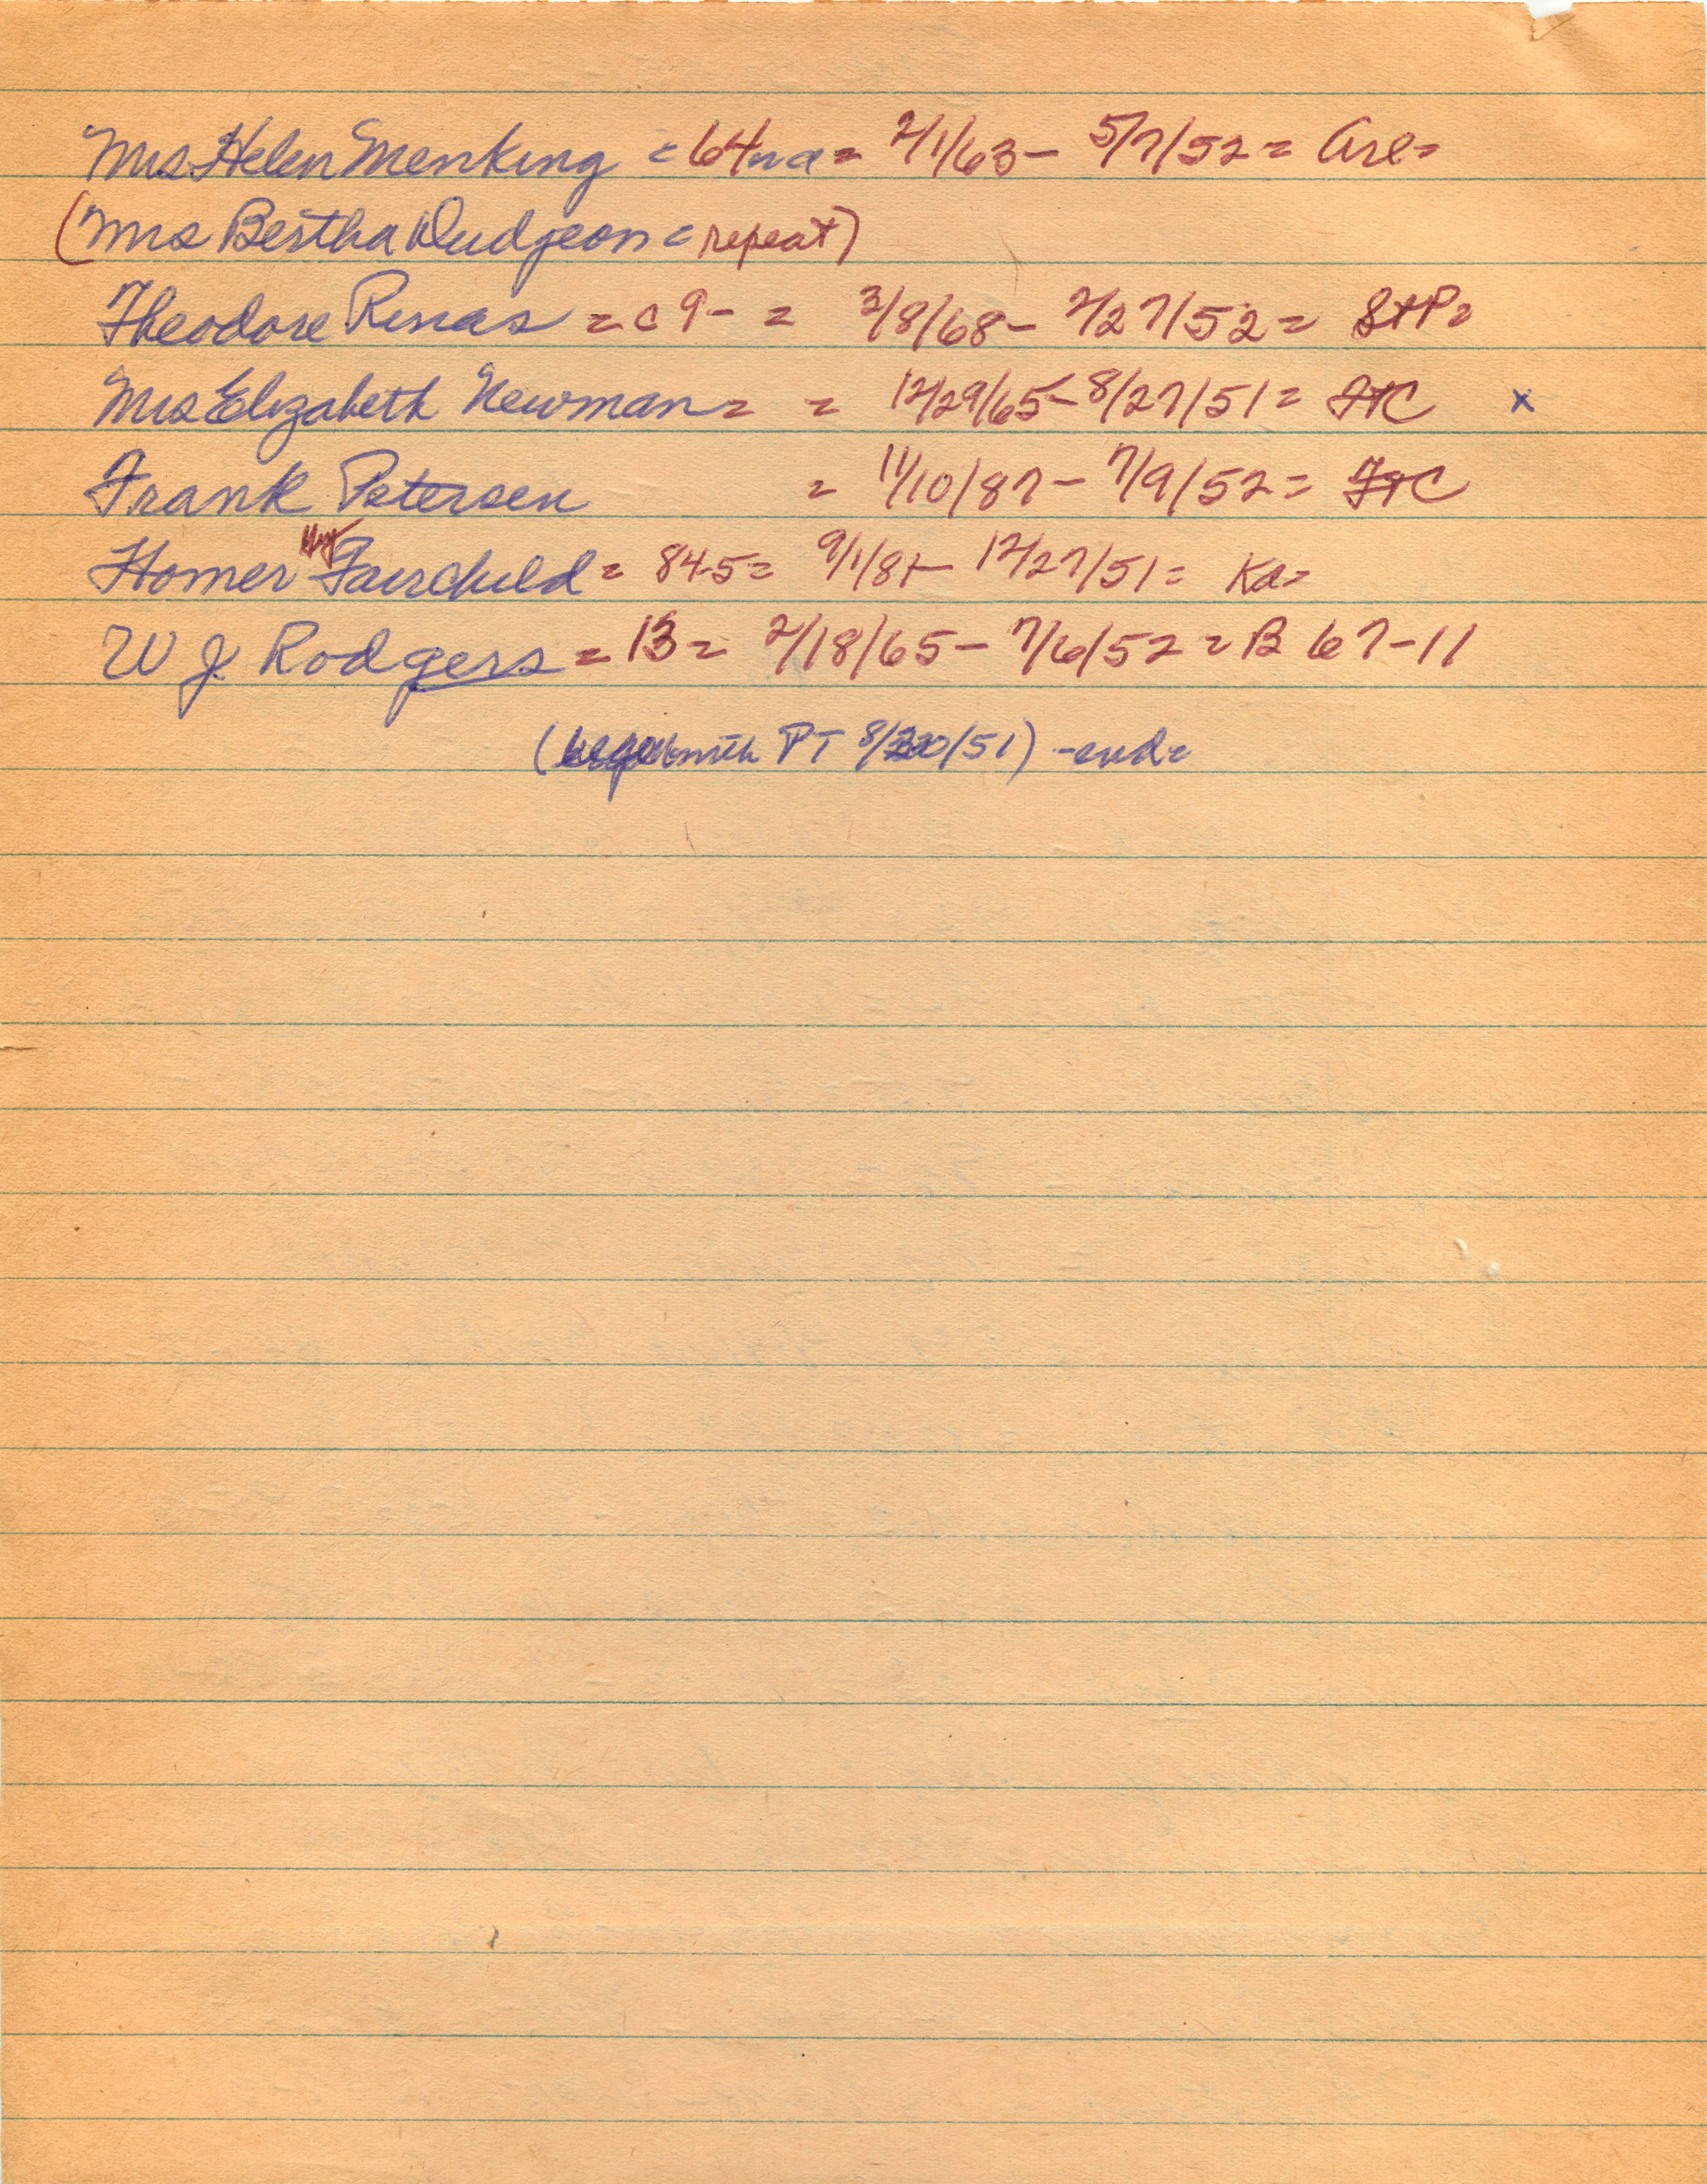 Mrs Helen Menking = 64 na = 2/1/63 - 5/7/52 = Arl =
(Mrs Bertha Dudgeon = repeat)
Theodore Rinas = c 9 - = 3/8/68 - 2/27/52 = StP =
Mrs Elizabeth Newman = = 12/29/65 - 8/27/51 = FtC x
Frank Petersen = 11/10/87 - 7/9/52 = FtC
Homer Fairchild = 845 = 9/1/81 - 12/27/51 = Ka =
W J. Rodgers = 13 = 2/18/65 - 7/6/52 = B 67-11
( with PT 8/20/51) - end =